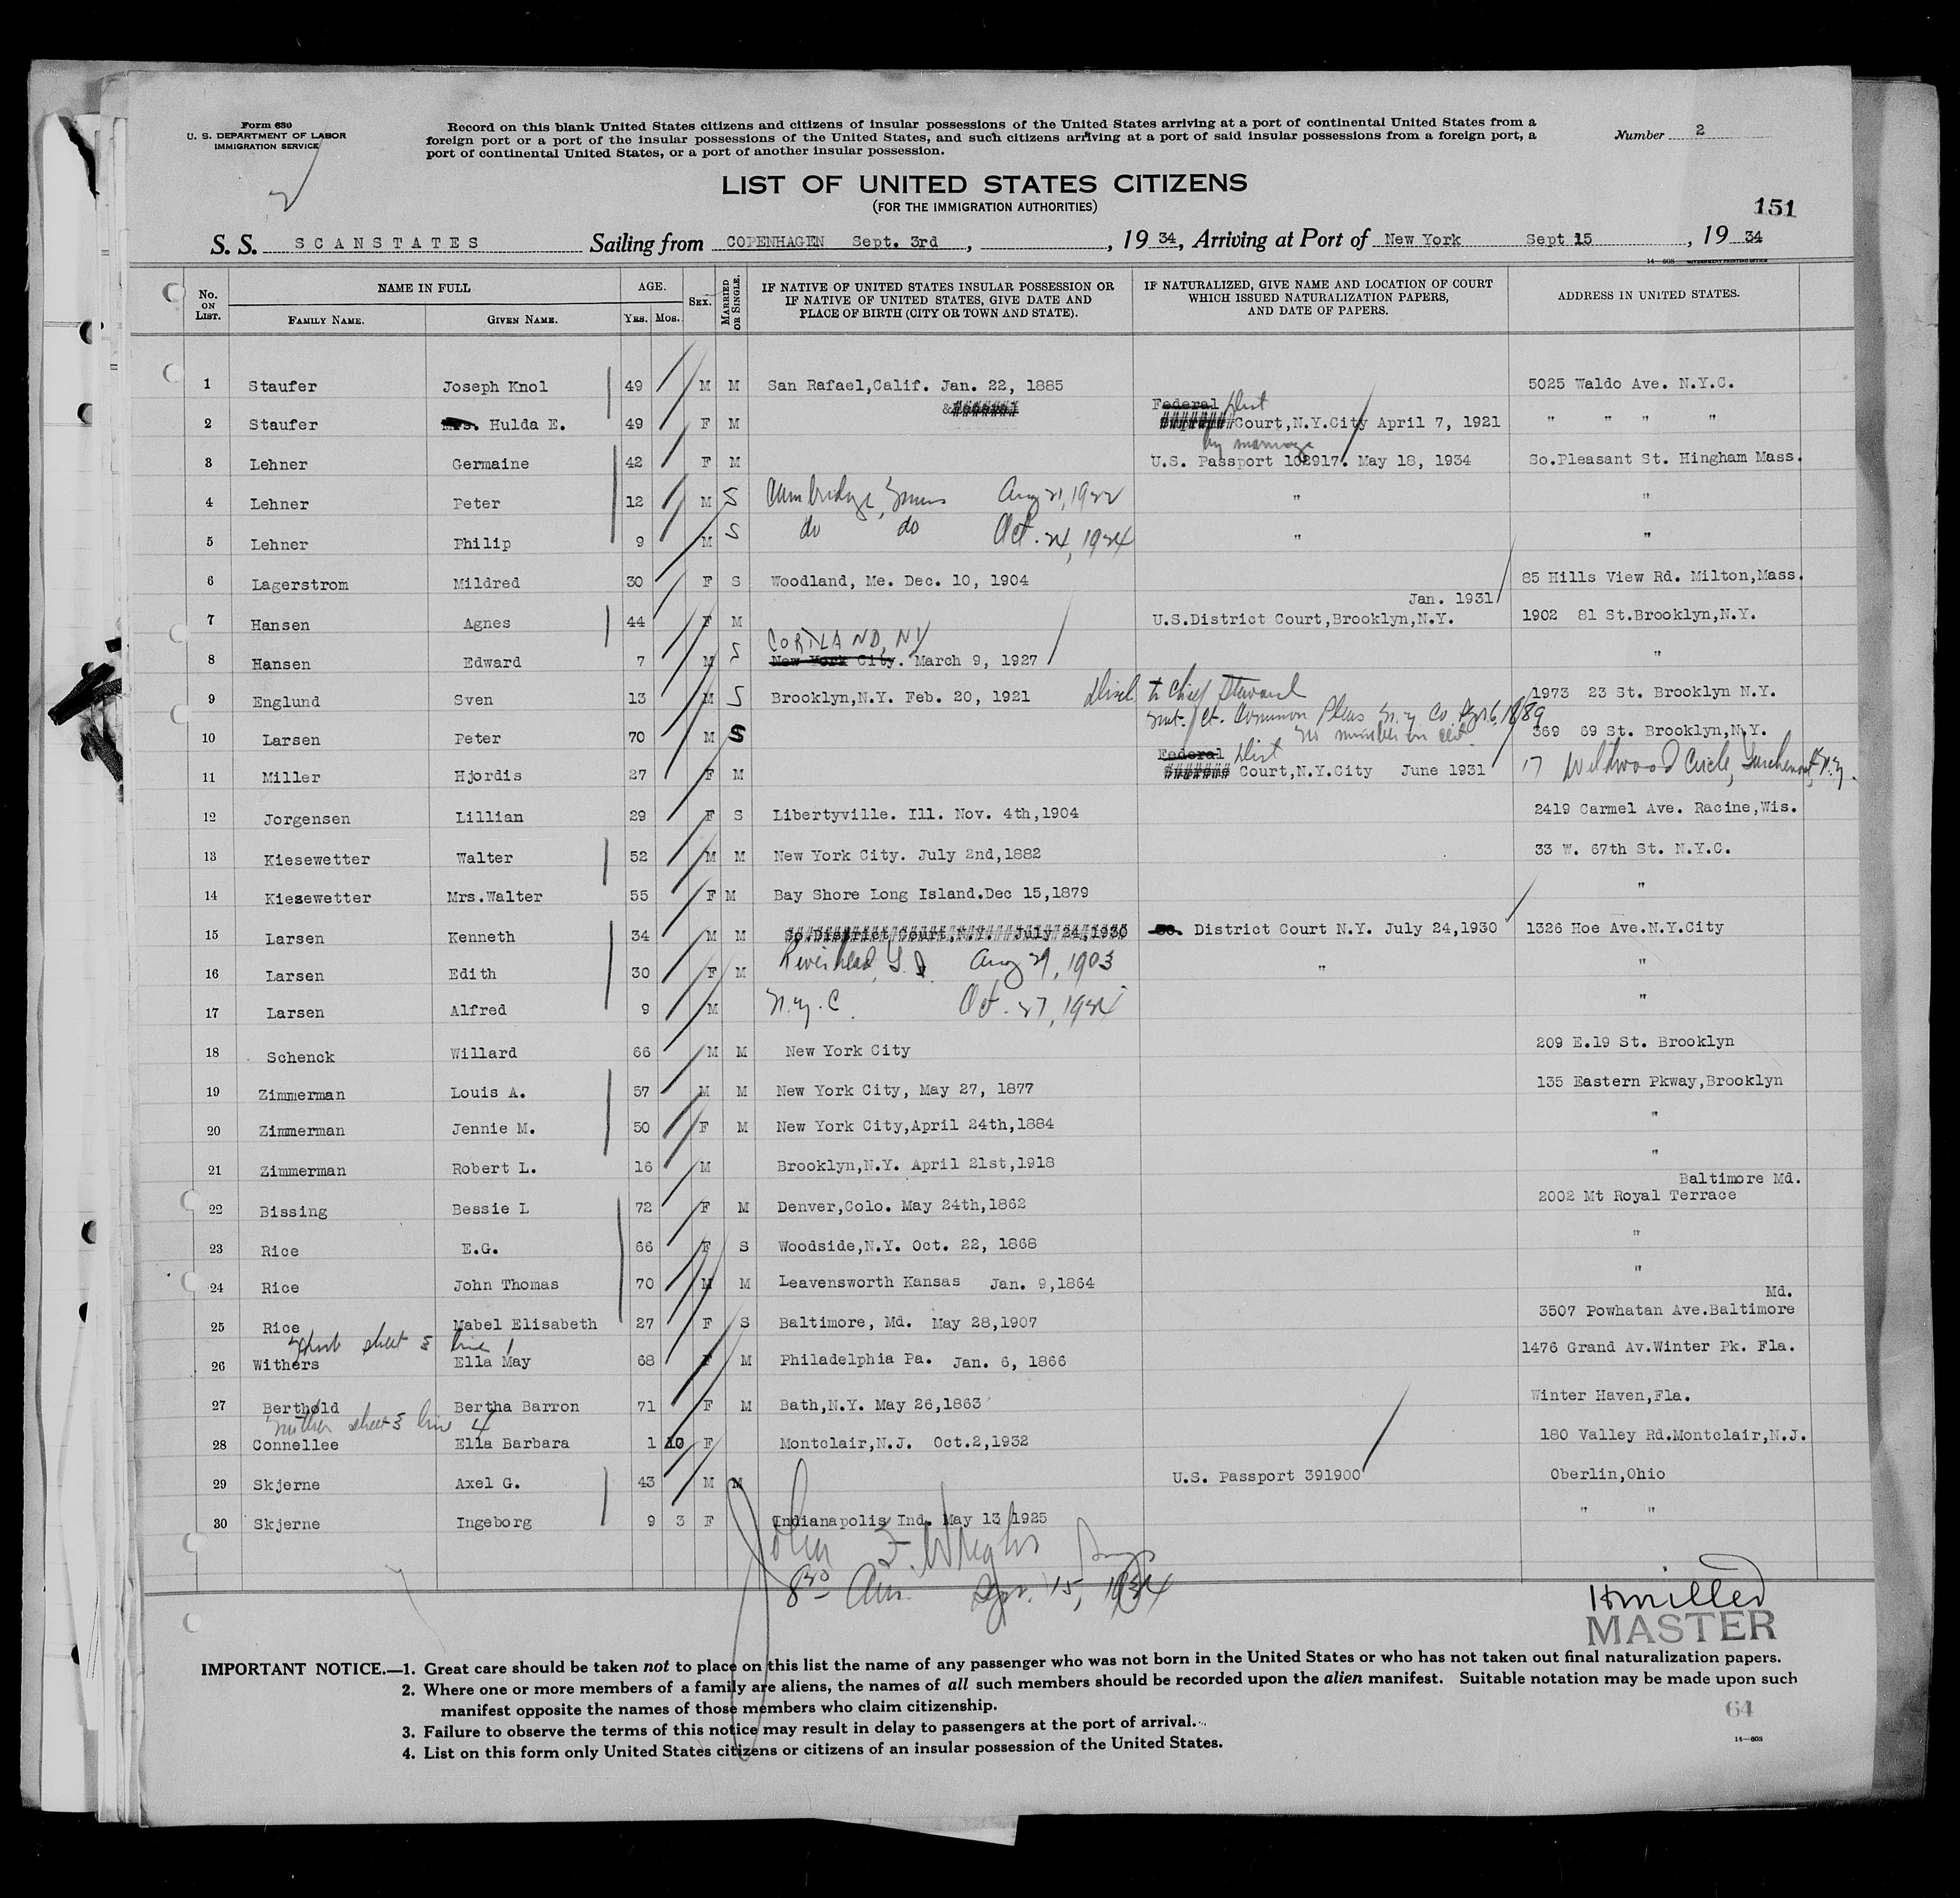 Form 630
U. S. DEPARTMENT OF LABOR
IMMIGRATION SERVICE
Record on this blank United States citizens and citizens of insular possessions of the United States arriving at a port of continental United States from a
foreign port or a port of the insular possessions of the United States, and such citizens arriving at a port of said insular possessions from a foreign port, a
port of continental United States, or a port of another insular possession.
Number 2
LIST OF UNITED STATES CITIZENS
(FOR THE IMMIGRATION AUTHORITIES)
151
S. S. SCANSTATES Sailing from COPENHAGEN Sept. 3rd, , 19 34, Arriving at Port of New York Sept 15, 19 34
No. ON LIST. NAME IN FULL FAMILY NAME. GIVEN NAME. AGE. YRS. MOS. SEX. MARRIED OR SINGLE. IF NATIVE OF UNITED STATES INSULAR POSSESSION OR IF NATIVE OF UNITED STATES, GIVE DATE AND PLACE OF BIRTH (CITY OR TOWN AND STATE). IF NATURALIZED, GIVE NAME AND LOCATION OF COURT WHICH ISSUED NATURALIZATION PAPERS, AND DATE OF PAPERS. ADDRESS IN UNITED STATES.
1 Staufer Joseph Knol 49 M M San Rafael,Calif. Jan. 22, 1885 5025 Waldo Ave. N.Y.C.
Federal Dist
2 Staufer Mrs. Hulda E. 49 F M Court,N.Y.City April 7, 1921 " " " "
by marriage
3 Lehner Germaine 42 F M U.S. Passport 108917. May 18, 1934 So.Pleasant St. Hingham Mass.
4 Lehner Peter 12 M S Cambridge, Mass Aug 21, 1922 " "
5 Lehner Philip 9 M S do do Oct. 24, 1924 " "
6 Lagerstrom Mildred 30 F S Woodland, Me. Dec. 10, 1904 85 Hills View Rd. Milton,Mass.
Jan. 1931
7 Hansen Agnes 44 F M U.S.District Court,Brooklyn,N.Y. 1902 81 St.Brooklyn,N.Y.
CORTLAND, NY
8 Hansen Edward 7 M S New York City. March 9, 1927 "
9 Englund Sven 13 M S Brooklyn,N.Y. Feb. 20, 1921 to Chief Steward 1973 23 St. Brooklyn N.Y.
Ct. Common Pleas N.Y. Co. 1889
10 Larsen Peter 70 M S 369 69 St. Brooklyn,N.Y.
Federal Dist
11 Miller Hjordis 27 F M Court,N.Y.City June 1931 17 Wildwood Circle, Larchmont, N.Y.
12 Jorgensen Lillian 29 F S Libertyville. Ill. Nov. 4th,1904 2419 Carmel Ave. Racine,Wis.
13 Kiesewetter Walter 52 M M New York City. July 2nd,1882 33 W. 67th St. N.Y.C.
14 Kiesewetter Mrs.Walter 55 F M Bay Shore Long Island.Dec 15,1879 "
15 Larsen Kenneth 34 M M So.District Court,N.Y. July 24,1930 So. District Court N.Y. July 24,1930 1326 Hoe Ave.N.Y.City
16 Larsen Edith 30 F M Riverhead, L.I. Aug 29, 1903 " "
17 Larsen Alfred 9 M N.Y.C. Oct. 27, 1924 "
18 Schenck Willard 66 M M New York City 209 E.19 St. Brooklyn
19 Zimmerman Louis A. 57 M M New York City, May 27, 1877 135 Eastern Pkway,Brooklyn
20 Zimmerman Jennie M. 50 F M New York City,April 24th,1884 "
21 Zimmerman Robert L. 16 M Brooklyn,N.Y. April 21st,1918 "
Baltimore Md.
22 Bissing Bessie L 72 F M Denver,Colo. May 24th,1862 2002 Mt Royal Terrace
23 Rice E.G. 66 F S Woodside,N.Y. Oct. 22, 1868 "
24 Rice John Thomas 70 M M Leavensworth Kansas Jan. 9,1864 "
Md.
25 Rice Mabel Elisabeth 27 F S Baltimore, Md. May 28,1907 3507 Powhatan Ave.Baltimore
sheet 3 line 1
26 Withers Ella May 68 F M Philadelphia Pa. Jan. 6, 1866 1476 Grand Av.Winter Pk. Fla.
27 Berthold Bertha Barron 71 F M Bath,N.Y. May 26,1863 Winter Haven,Fla.
Mother sheet 3 line 4
28 Connellee Ella Barbara 1 10 F Montclair,N.J. Oct.2,1932 180 Valley Rd.Montclair,N.J.
29 Skjerne Axel G. 43 M M U.S. Passport 391900 Oberlin,Ohio
30 Skjerne Ingeborg 9 3 F Indianapolis Ind. May 13 1925 " "
John F. Wright
15, 1934
H Miller
MASTER
IMPORTANT NOTICE.—1. Great care should be taken not to place on this list the name of any passenger who was not born in the United States or who has not taken out final naturalization papers.
2. Where one or more members of a family are aliens, the names of all such members should be recorded upon the alien manifest. Suitable notation may be made upon such
manifest opposite the names of those members who claim citizenship.
3. Failure to observe the terms of this notice may result in delay to passengers at the port of arrival.
4. List on this form only United States citizens or citizens of an insular possession of the United States.
64
14—608